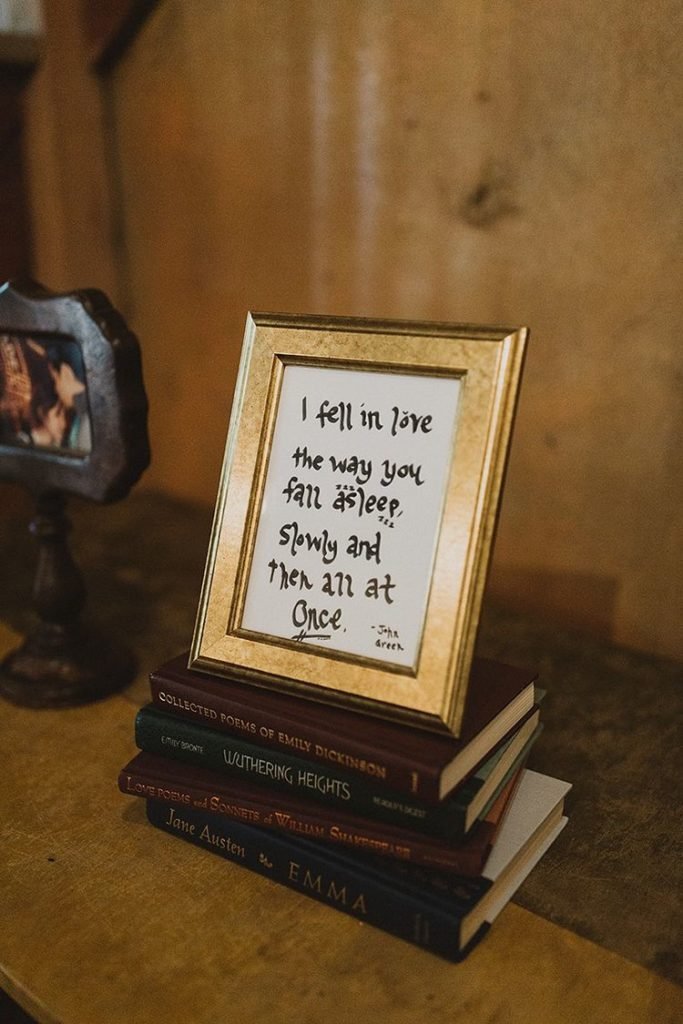 I fell in love
the way you
fall asleep,
zzz
zzz
slowly and
then all at
Once.
- John
Green
COLLECTED POEMS OF EMILY DICKINSON
EMILY BRONTE WUTHERING HEIGHTS READER'S DIGEST
LOVE POEMS and SONNETS of WILLIAM SHAKESPEARE
Jane Austen EMMA